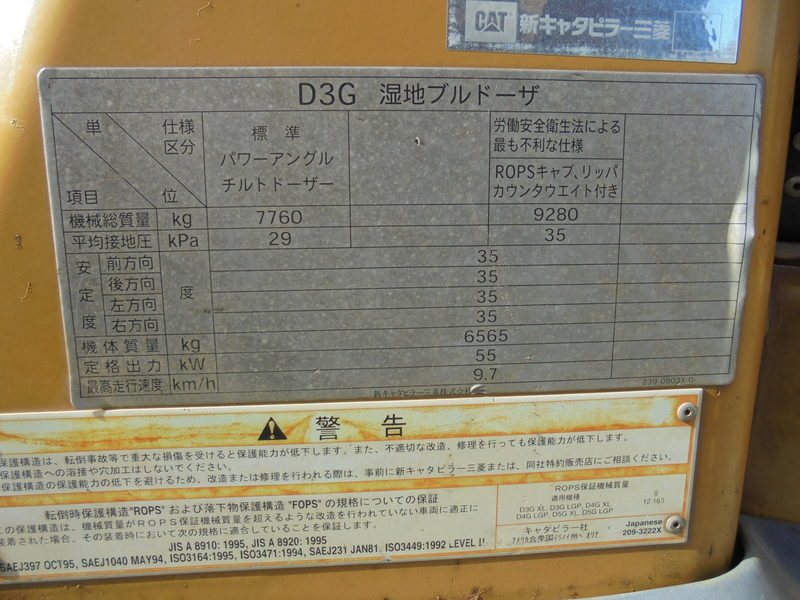 CAT 新キャタピラー三菱
D3G 湿地ブルドーザ
単 仕様 標準 労働安全衛生法による
区分 パワーアングル 最も不利な仕様
チルトドーザー ROPSキャブ、リッパ
項目 位 カウンタウエイト付き
機械総質量 kg 7760 9280
平均接地圧 kPa 29 35
安定度 前方向 度 35
後方向 35
左方向 35
右方向 35
機体質量 kg 6565
定格出力 kW 55
最高走行速度 km/h 9.7
新キャタピラー三菱株式会社 239-0803X-0-
警告
保護構造は、転倒事故等で重大な損傷を受けると保護能力が低下します。また、不適切な改造、修理を行っても保護能力が低下します。
保護構造への溶接や穴加工はしないでください。
保護構造の保護能力の低下を避けるため、改造または修理を行われる際は、事前に新キャタピラー三菱または、同社特約販売店にご相談ください。
転倒時保護構造"ROPS" および落下物保護構造 "FOPS" の規格についての保証
この保護構造は、機械質量がROPS保証機械質量を超えるような改造を行われていない車両に適正に
装着された場合、その装着時において次の規格に適合していることを保証します。
JIS A 8910: 1995, JIS A 8920: 1995
SAEJ397 OCT95, SAEJ1040 MAY94, ISO3164:1995, ISO3471:1994, SAEJ231 JAN81, ISO3449:1992 LEVEL II
ROPS保証機械質量
適用機種
D3G XL, D3G LGP, D4G XL
D4G LGP, D5G XL, D5G LGP
キャタピラー社
アメリカ合衆国イリノイ州ペオリア
Japanese
209-3222X